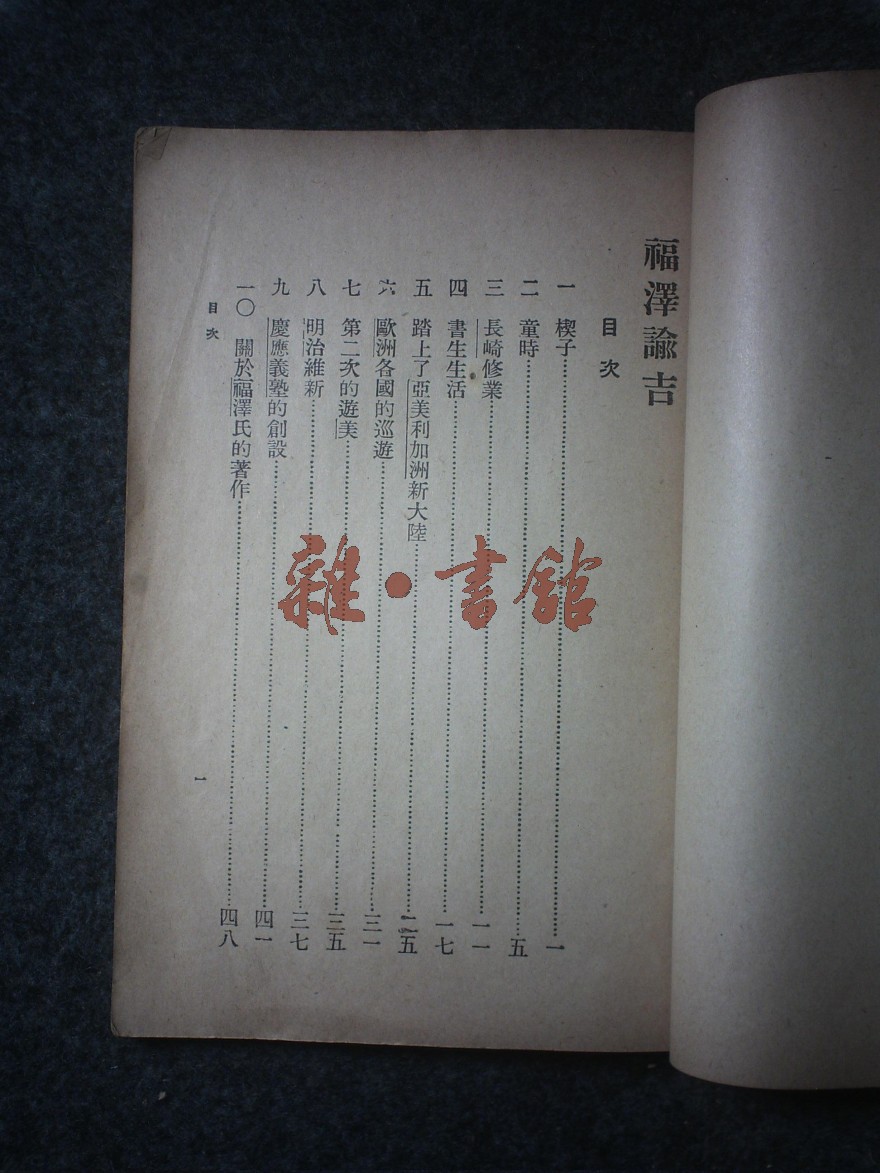 福澤諭吉
目次
一 楔子……一
二 童時……五
三 長崎修業……一一
四 書生生活……一七
五 踏上了亞美利加洲新大陸……二五
六 歐洲各國的巡遊……三一
七 第二次的遊美……三五
八 明治維新……三七
九 慶應義塾的創設……四一
一〇 關於福澤氏的著作……四八
目次
一
雜·書館